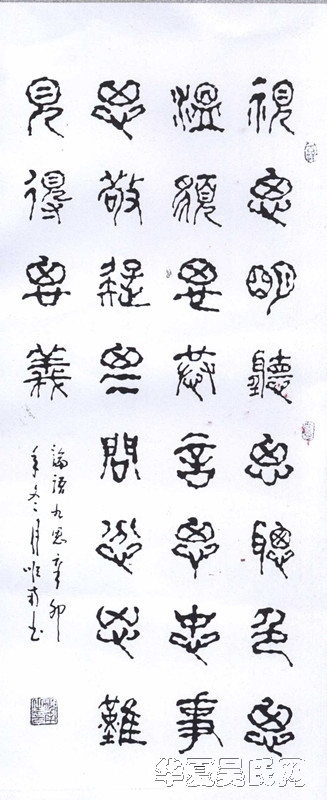 視思明聽思聰色思
溫貌思恭言思忠事
思敬疑思問忿思難
見得思義
論語九思辛卯
年冬月唯
华夏吴氏网